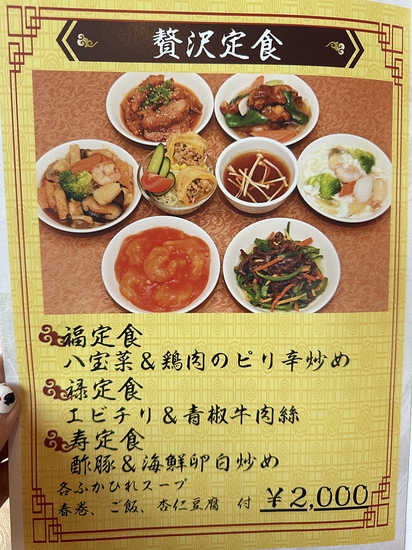 贅沢定食
福定食
八宝菜&鶏肉のピリ辛炒め
禄定食
エビチリ&青椒牛肉絲
寿定食
酢豚&海鮮卵白炒め
各ふかひれスープ
春巻、ご飯、杏仁豆腐 付 ¥2,000